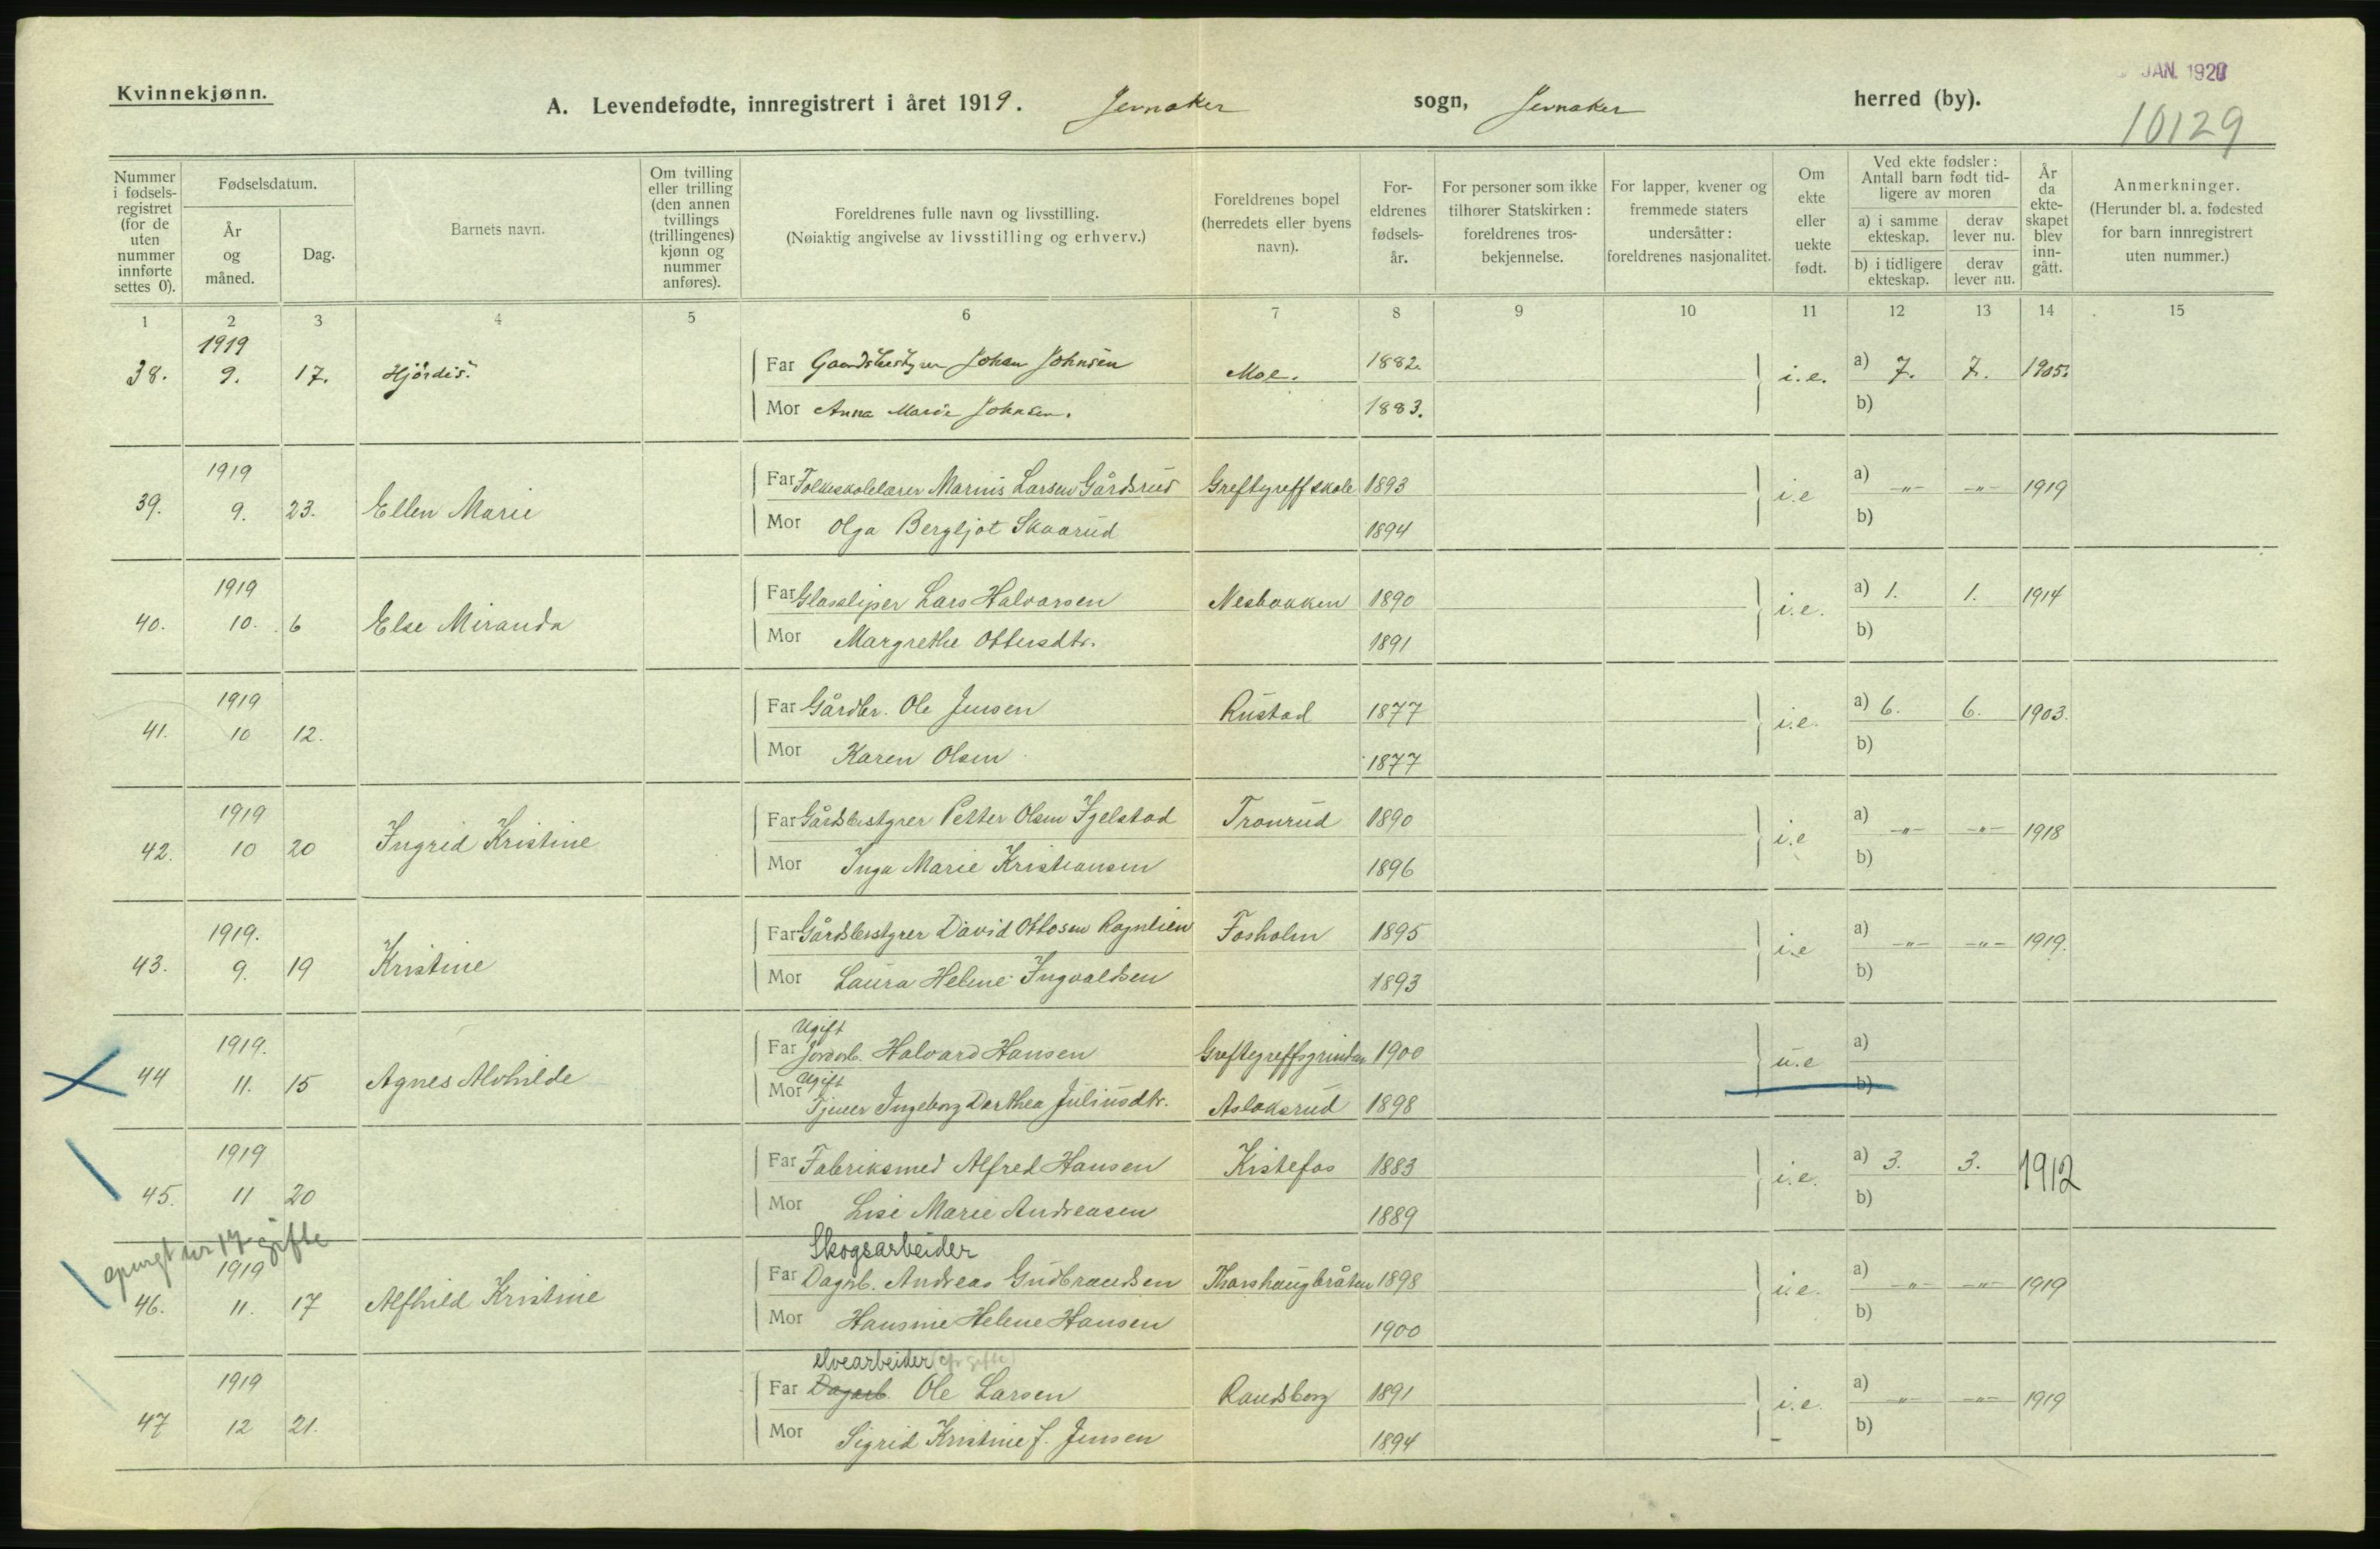 JAN. 1920
Kvinnekjønn.
A. Levendefødte, innregistrert i året 1919. Jevnaker sogn, Jevnaker herred (by).
10129
Nummer i fødsels-registret (for de uten nummer innførte settes 0).
Fødselsdatum.
År og måned.
Dag.
Barnets navn.
Om tvilling eller trilling (den annen tvillings (trillingenes) kjønn og nummer anføres).
Foreldrenes fulle navn og livsstilling.
(Nøiaktig angivelse av livsstilling og erhverv.)
Foreldrenes bopel (herredets eller byens navn).
For-eldrenes fødsels-år.
For personer som ikke tilhører Statskirken: foreldrenes tros-bekjennelse.
For lapper, kvener og fremmede staters undersåtter: foreldrenes nasjonalitet.
Om ekte eller uekte født.
Ved ekte fødsler: Antall barn født tid-ligere av moren
a) i samme ekteskap.
derav lever nu.
b) i tidligere ekteskap.
derav lever nu.
År da ekte-skapet blev inn-gått.
Anmerkninger.
(Herunder bl. a. fødested for barn innregistrert uten nummer.)
1 2 3 4 5 6 7 8 9 10 11 12 13 14 15
1919
38. 9. 17. Hjördis. Far Gaardsbestyrer Johan Johnsen Moe. 1882. i.e. a) 7. 7. 1905.
Mor Anna Marie Johnsen. 1883. b)
1919
39. 9. 23. Ellen Marie Far Folkeskolelærer Marius Larsen Gårdsrud Greftegreff skole 1893 i.e a) -"- -"- 1919
Mor Olga Bergljot Skaarud 1894 b)
1919
40. 10. 6 Else Miranda Far Glassliper Lars Halvorsen Nesbakken 1890 i.e. a) 1. 1. 1914
Mor Margrethe Ottersdtr. 1891 b)
1919
41. 10 12. Far Gårdbr. Ole Jensen Rustad 1877 i.e. a) 6. 6. 1903.
Mor Karen Olsen 1877 b)
1919
42. 10 20 Ingrid Kristine Far Gårdsbestyrer Petter Olsen Igelstad Tronrud 1890 i.e a) -"- -"- 1918
Mor Inga Marie Kristiansen 1896 b)
1919.
43. 9. 19 Kristine Far Gårdsbestyrer David Ottosen Rognlien Fosholm 1895 i.e a) -"- -"- 1919.
Mor Laura Helene Ingvaldsen 1893 b)
1919. Ugift
44 11. 15 Agnes Alvhilde Far Jordarb. Halvard Hansen Greftegreffsgrinden 1900 u.e a)
Ugift
Mor Tjener Ingeborg Dorthea Juliusdtr. Aslaksrud 1898 b)
1919
45. 11 20 Far Fabriksmed Alfred Hansen Kistefos 1883 i.e. a) 3. 3. 1912
Mor Lise Marie Andreasen 1889 b)
spurgt nr 17 gifte
1919 Skogsarbeider
46. 11. 17 Alfhild Kristine Far Dagarb. Andreas Gudbrandsen Thorshaugbråten 1898 i.e. a) -"- -"- 1919
Mor Hansine Helene Hansen 1900 b)
1919 elvearbeider
47 12 21. Far Dagarb. Ole Larsen Randsborg 1891 i.e. a) -"- -"- 1919
Mor Sigrid Kristine f. Jensen 1894 b)